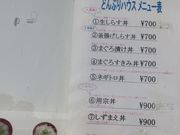 どんぶりハウス メニュー表
①生しらす丼 ¥700
②釜揚げしらす丼 ¥700
③まぐろ漬け丼 ¥700
④まぐろすきみ丼 ¥700
⑤ネギトロ丼 ¥700
⑥用宗丼 ¥900
⑦しずまえ丼 ¥900